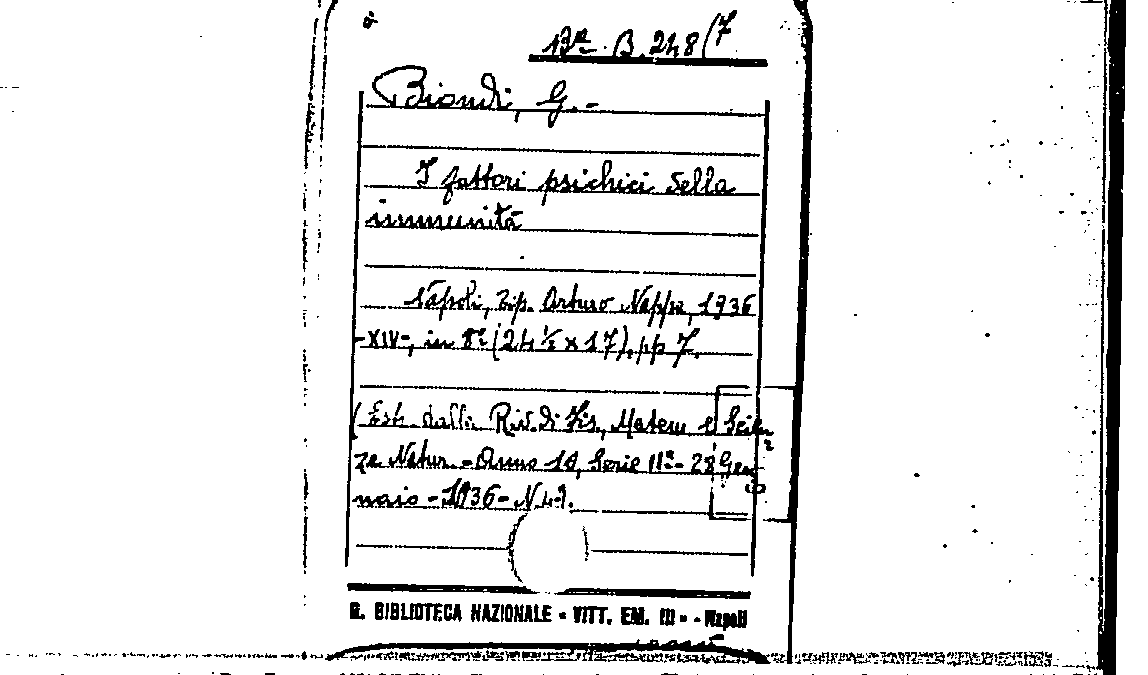 Ba. B. 248(7
Biondi, G. -
I fattori psichici della
immunità
Napoli, Tip. Arturo Nappa, 1936
-XIV-, in 8º (24 ½ x 17), pp 7.
(Estr. dalla Riv. di Fis., Matem e Scien
ze Natur. - Anno 10, Serie IIª - 28 Gen
naio - 1936 - N. 4.).
R. BIBLIOTECA NAZIONALE - VITT. EM. III - - Napoli